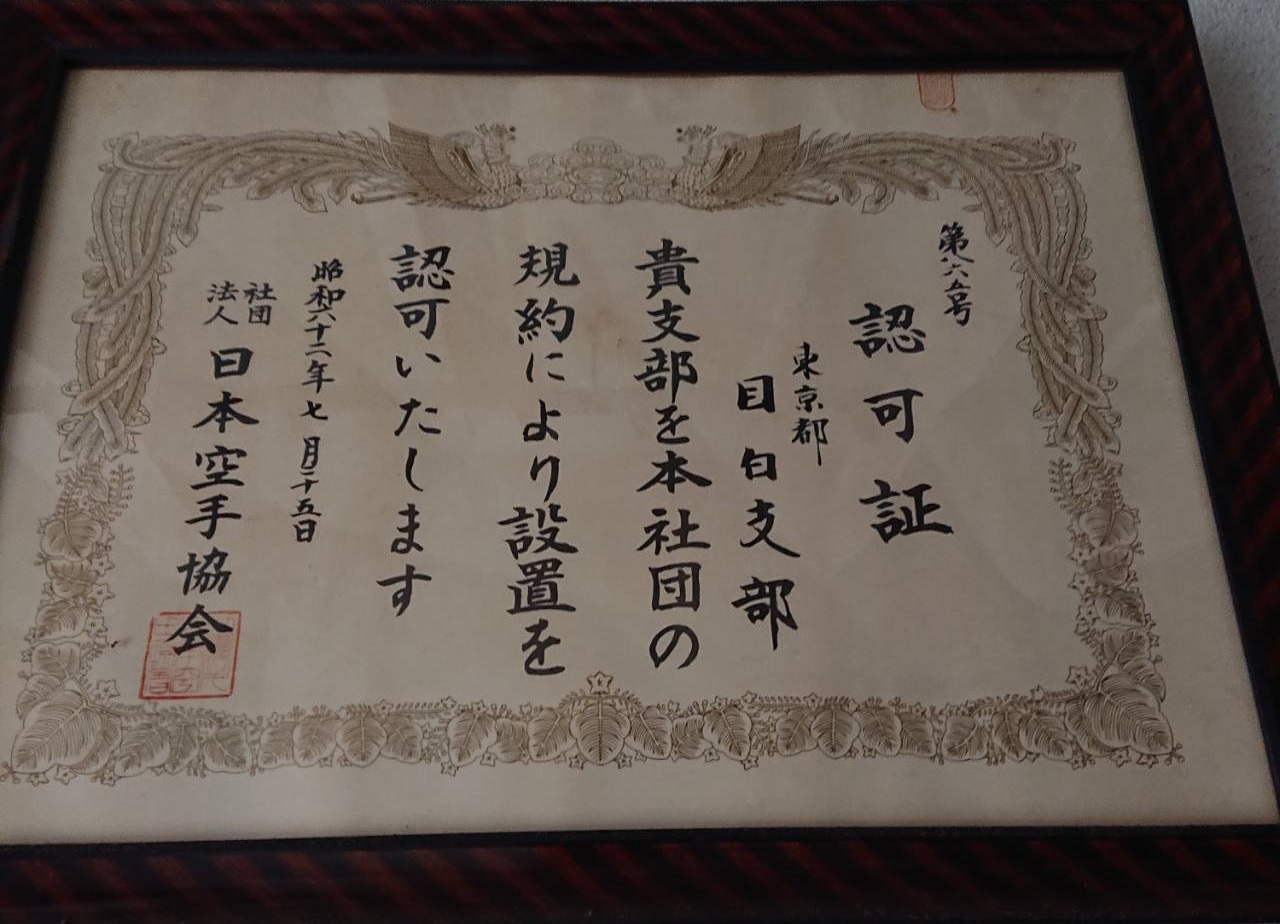 第八六五号
認可証
東京都
目白支部
貴支部を本社団の
規約により設置を
認可いたします
昭和六十二年七月二十五日
社団
法人
日本空手協会